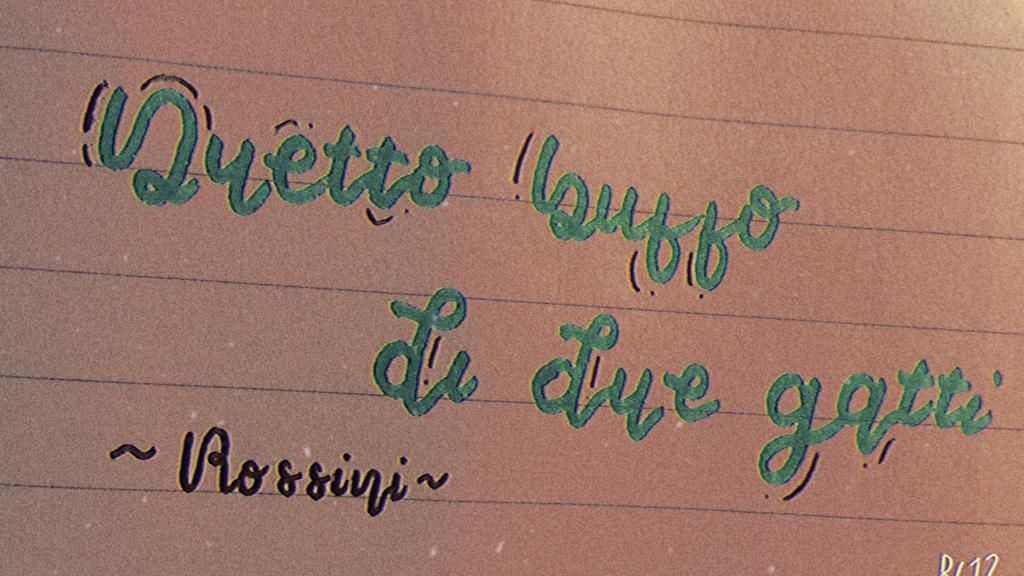 Duetto buffo
di due gatti
~ Rossini ~